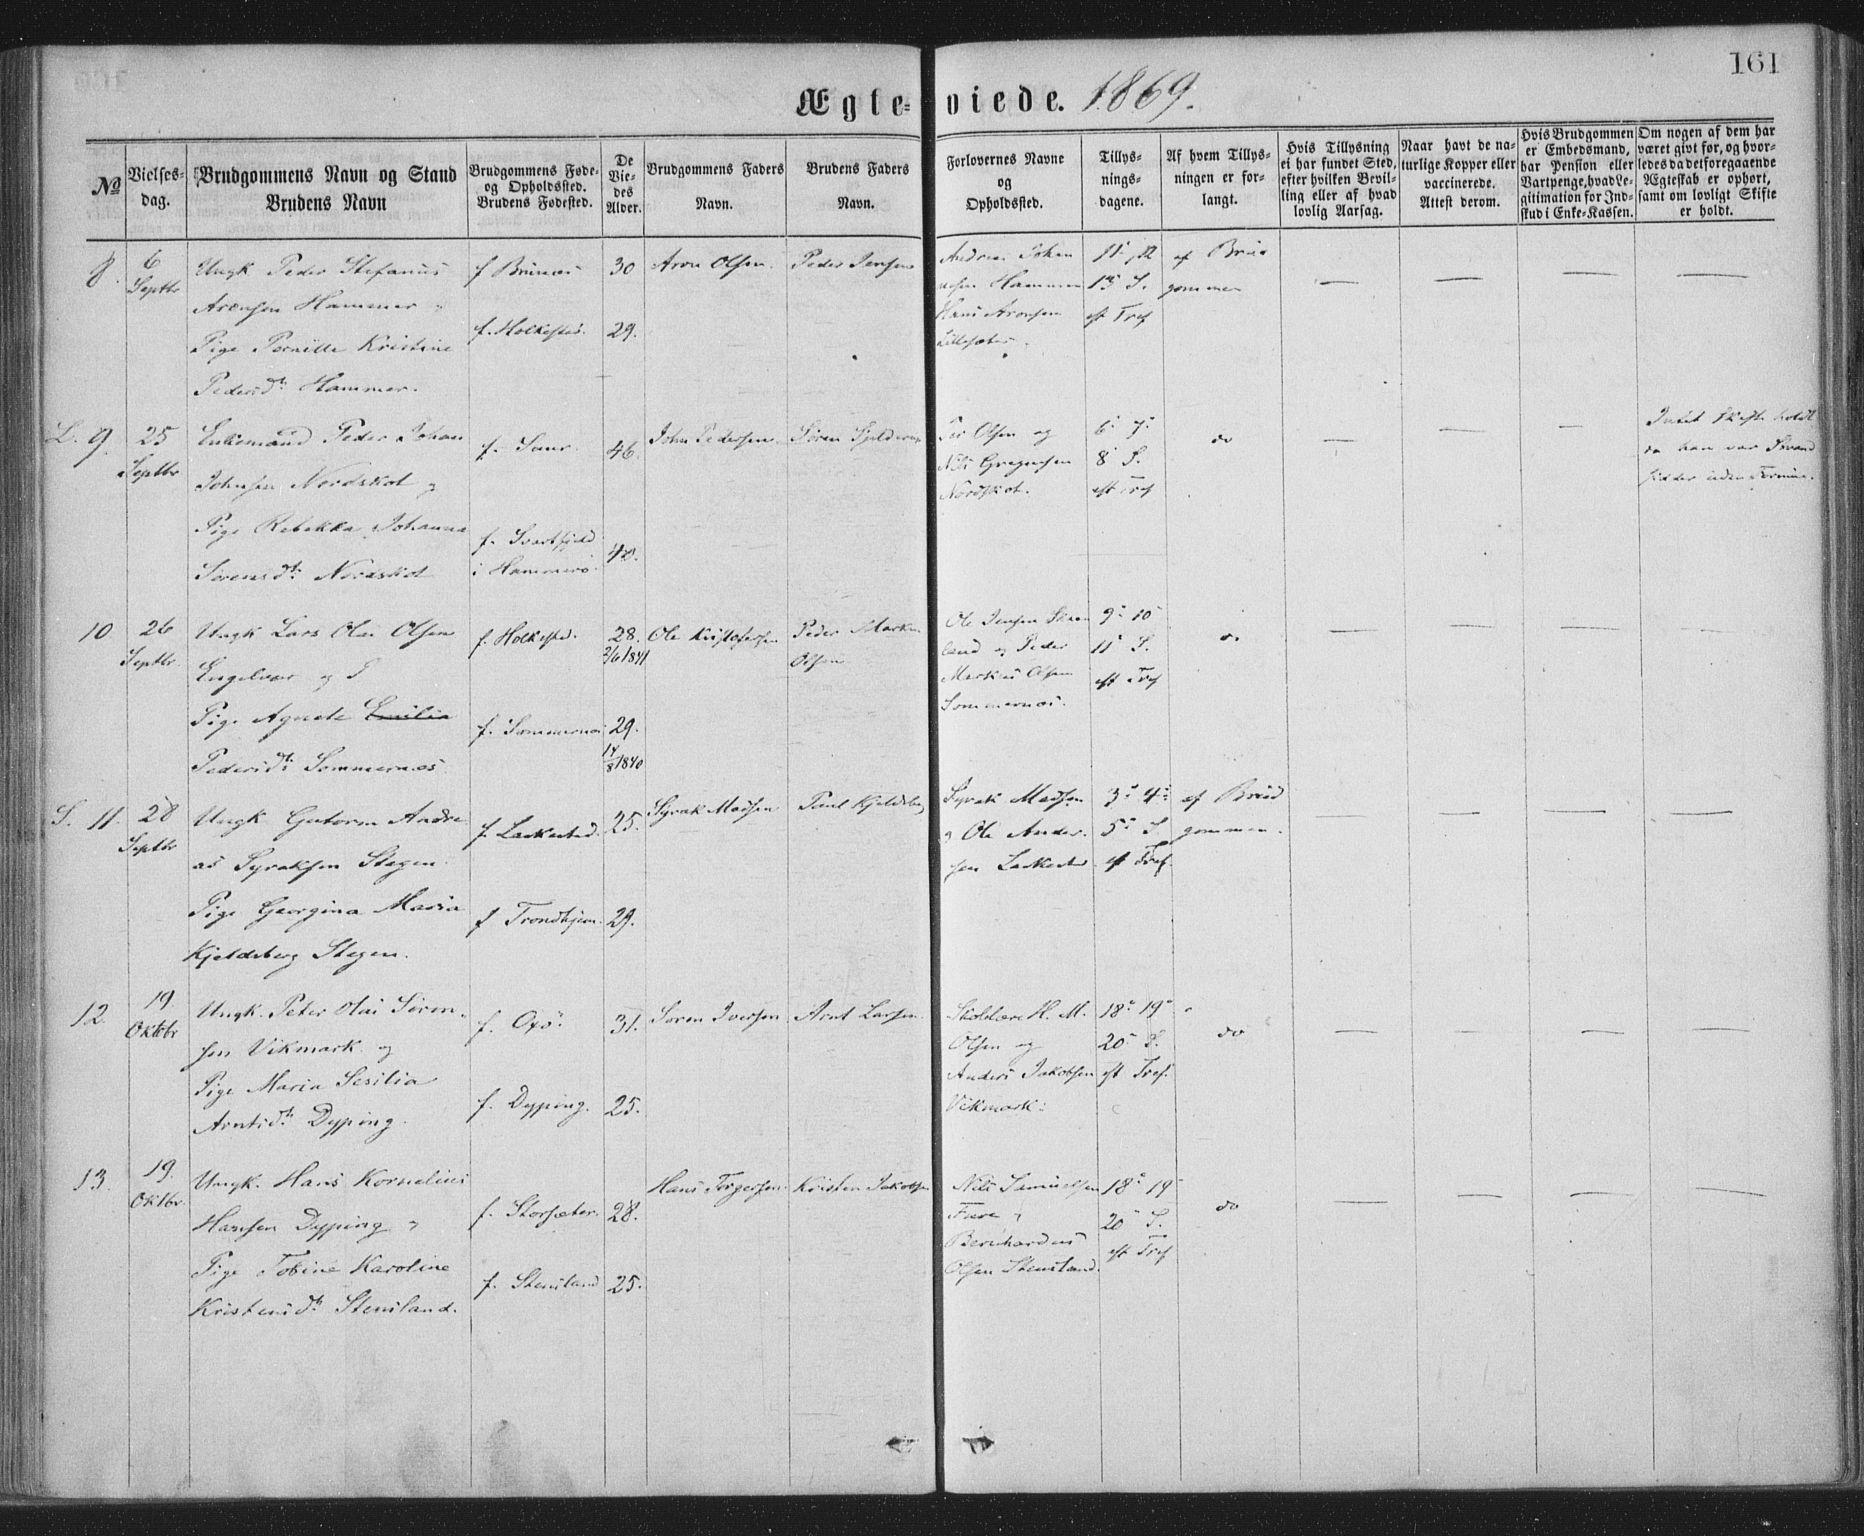 161
Ægte- viede. 1869.
No
Vielses-
dag.
Brudgommens Navn og Stand
Brudens Navn
Brudgommens Føde-
og Opholdssted.
Brudens Fødested.
De
Vie-
des
Alder.
Brudgommens Faders
Navn.
Brudens Faders
Navn.
Forlovernes Navne
og
Opholdssted.
Tillys-
nings-
dagene.
Af hvem Tillys-
ningen er for-
langt.
Hvis Tillysning
ei har fundet Sted,
efter hvilken Bevil-
ling eller af hvad
lovlig Aarsag.
Naar havt de na-
turlige Kopper eller
vaccinerede.
Attest derom.
Hvis Brudgommen
er Embedsmand,
har Pension eller
Vartpenge, hvad Le-
gitimation for Ind-
skud i Enke-Kassen.
Om nogen af dem har
været givt før, og hvor-
ledes da det foregaaende
Ægteskab er ophørt,
samt om lovligt Skifte
er holdt.
8.
6
Septbr
Ungk Peder Stefanus
Aronsen Hammer
Pige Pernille Kristine
Pedersdtr Hammer.
f
f. Holkestad.
30
29.
Aron Olsen.
Peder Jensen
Andreas Johan
nesen Hammer
Hans Aronsen
Lillesæter.
11' 12
13' S.
eft Tref
af Brud
gommen
L. 9.
25
Septbr
Enkemand Peder Johan
Johnsen Nordskot og
Pige Rebekka Johanna
Sørensdtr Nordskot
f.
f. Svartfjeld
i Hammerø.
46.
40.
John Pedersen
Søren
Per Olsen og
Nils Gregusen
Nordskot.
6' 7'
8' S.
eft Tref
do
Intet Skifte holdt
da han var Strand
sidder uden Formue.
10
26
Septbr
Ungk Lars Olai Olsen
Engelvær og
Pige Agnete Emilia
Pedersdtr Sommernæs
f. Holkestad.
f. Sommernæs
28.
2/6 1841
29.
14/8 1840
Ole Kristofersen
Peder Markus
Olsen
Ole Jensen
land og Peder
Markus Olsen
Sommernæs.
9' 10
11' S.
eft Tref
do
S. 11.
28
Septbr
Ungk Gutorm Andre
as Syraksen Stegen
Pige Georgina Maria
Kjeldsberg Stegen.
f. Laskestad.
f Trondhjem.
25.
29.
Syrak Madsen
Paul Kjeldsberg
Syrak Madsen
og Ole Ander-
sen Laskestad
3' 4'
5' S.
eft Tref.
af Brud
gommen.
12.
19
Oktbr
Ungk. Peter Olai Søren-
sen Vikmark og
Pige Maria Sesilia
Arntsdtr Dyping
f.
f. Dyping.
31.
25.
Søren Iversen
Arnt Larsen
Skolelærer H. M.
Olsen og
Anders Jakobsen
Vikmark.
18' 19'
20' S.
eft Tref.
do
13.
19.
Oktbr.
Ungk. Hans Kornelius
Hansen Dyping
Pige Tobine Karoline
Kristensdtr Stensland.
f. Storsæter.
f. Stensland
28.
25.
Hans Torgersen
Kristen Jakobsen
Nils Samuelsen
Bernhardus
Olsen Stensland.
18' 19
20' S.
eft Tref
do